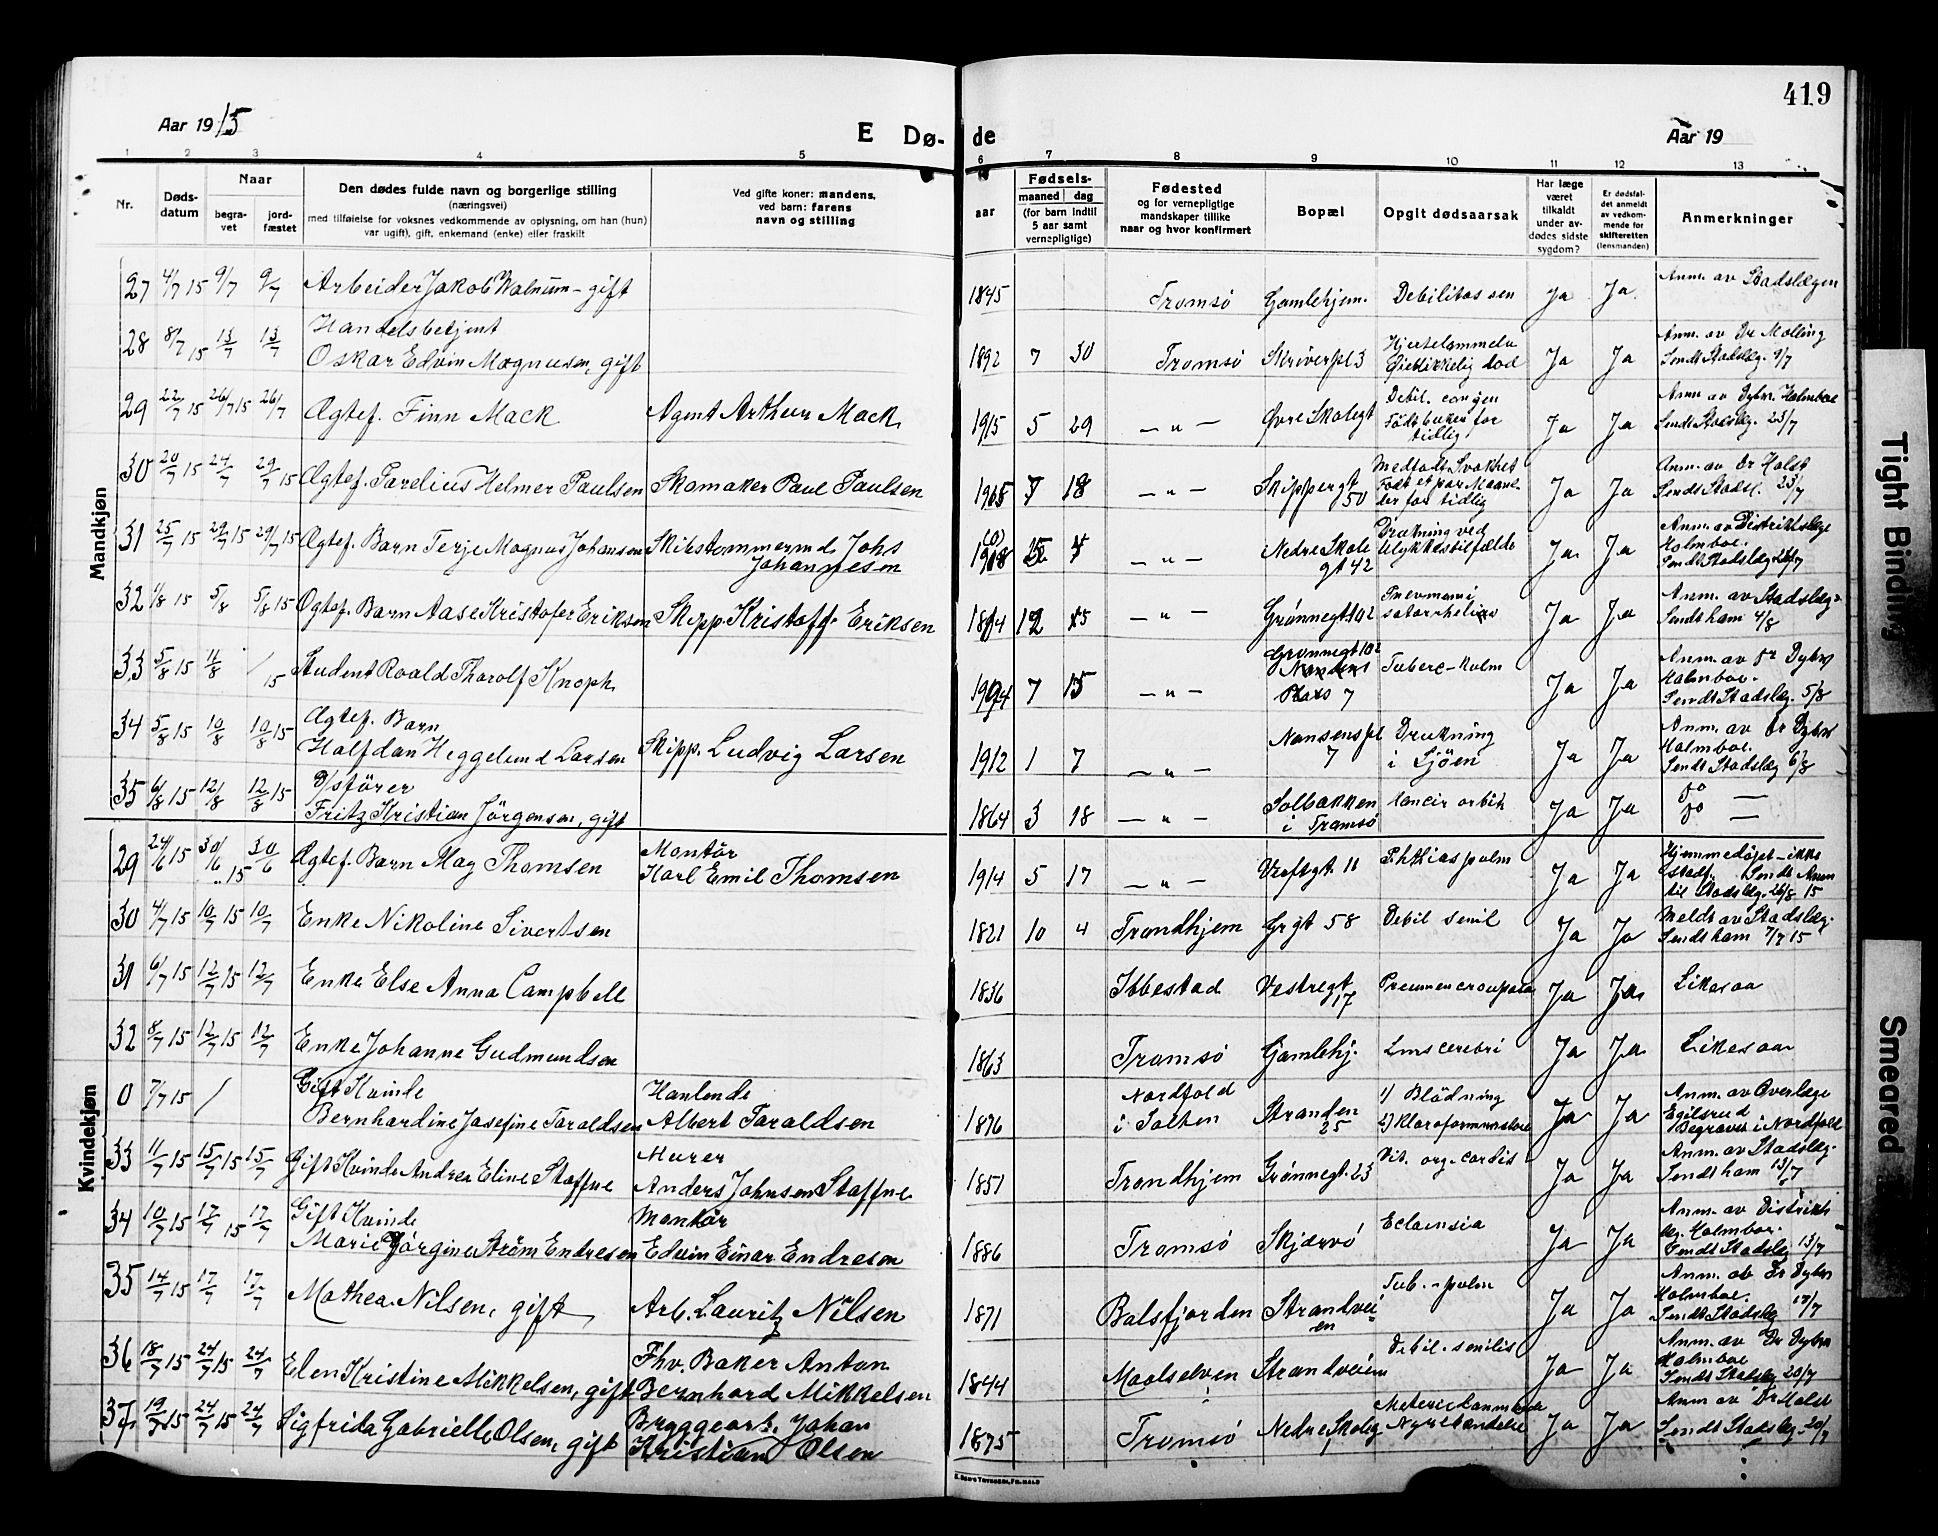 419
Aar 1915
E Dø- de
Aar 19
1 2 3 4 5 6 7 8 9 10 11 12 13
Nr.
Døds-
datum
Naar
begra-
vet
jord-
fæstet
Den dødes fulde navn og borgerlige stilling
(næringsvei)
med tilføielse for voksnes vedkommende av oplysning, om han (hun)
var ugift), gift, enkemand (enke) eller fraskilt
Ved gifte koner: mandens,
ved barn: farens
navn og stilling
aar
Fødsels-
maaned dag
(for barn indtil
5 aar samt
vernepligtige)
Fødested
og for vernepligtige
mandskaper tillike
naar og hvor konfirmert
Bopæl
Opgit dødsaarsak
Har læge
været
tilkaldt
under av-
dødes sidste
sygdom?
Er dødsfal-
det anmeldt
av vedkom-
mende for
skifteretten
(lensmanden)
Anmerkninger
Mandkjøn
27 4/7 15 9/7 9/7 Arbeider Jakob Walnum - gift 1845 Tromsö Gamlehjem. Debilitas sen Ja Ja Anm. av Stadslægen
28 8/7 15 13/7 13/7 Handelsbetjent
Oskar Edvin Magnusen, gift 1892 7 30 Tromsö Skriverpl 3 Hjertelammelse
Øieblikkelig död Ja Ja Anm. av Dr Molling
Sendt Stadslæg. 9/7
29 22/7 15 26/7 15 26/7 Ægtef. Finn Mack Agent Arthur Mack 1915 5 29 — " — Øvre Skolegt Debil. congen
Födt buker for
tidlig Ja Ja Anm av Dybw. Holmboe
Sendt Stadslæg. 23/7
30 20/7 15 24/7 29/7 15 Ægtef. Parelius Helmer Paulsen Skomaker Paul Paulsen 1915 7 18 — " — Skippergt
50 Medfödt Svakhet
Födt et par Maane-
der for tidlig Ja Ja Anm. av Dr Holst
Sendt Stadsl. 23/7
31 25/7 15 29/7 15 29/7 15 Ægtef. Barn Terje Magnus Johansen Skibstømmermd Johs
Johannesen — " — Nedre Skole
gt 42 Drukning ved
Ulykkestilfælde Ja Ja Anm. av Distriktslæge
Holmboe.
Sendt Stadslæg. 26/7
32 1/8 15 5/8 5/8 15 Ægtef. Barn Aase Kristofer Eriksen Skipp. Kristoff. Eriksen 12 — " — Grønnegt 102 Ja Ja Anm. av Stadslæg-
Sendt ham 4/8
33 5/8 15 11/8 / 15 Student Roald Thorolf Knoph 7 15 — " — Grønnegt 102
Nansens
Plass 7 Tuberc-kulm Ja Ja Anm. av Dr Dybw
Holmboe.
Sendt Stadslæg. 5/8
34 5/8 15 10/8 10/8 15 Ægtef. Barn
Halfdan Heggelund Larsen Skipp. Ludvig Larsen 1912 1 7 — " — Nansenspl
7 Drukning
i Sjöen Ja Ja Anm. av Dr Dybw
Holmboe.
Sendt Stadslæg 6/8
35 6/8 15 12/8 12/8 15 D/sförer
Fritz Kristian Jörgensen, gift 1864 3 18 — " — Solbakken
i Tromsö Cancir orbit Ja Ja Do —
Do —
Kvindekjøn
29 24/6 15 30/6 15 30/6 Ægtef. Barn May Thomsen Montör
Karl Emil Thomsen 1914 5 17 — " — Verftgt. 11 Phthias pulm Ja Ja Hjemmedöpt - ikke
stadf. Sendt Anm
til Stadslæg. 26/8 15
30 4/7 15 10/7 15 10/7 Enke Nikoline Sivertsen 1821 10 4 Trondhjem Grgt 58 Debil senil Ja Ja Meldt av Stadslæg.
Sendt ham 7/7 15
31 6/7 15 12/7 15 12/7 Enke Else Anna Campbell 1836 Ibbestad Vestregt
17 Pneumon crouposa Ja Ja Likesaa
32 8/7 15 12/7 15 12/7 Enke Johanne Gudmundsen 1863 Tromsö Gamlehj. Lues cerebri Ja Ja Likesaa
0 7/7 15 / Gift Kvinde
Bernhardine Josefine Taraldsen Hanlende
Albert Taraldsen 1876 Nordfold
i Salten Stranden
25 1) Blödning
2) Ja Ja Anm. av Overlæge
Egilsrud
Begravet i Nordfold
33 11/7 15 15/7 15 15/7 Gift Kvinde Andrea Eline Staffne Murer
Anders Johnsen Staffne 1851 Trondhjem Grønnegt. 23 Vit. org. cordis Ja Ja Anm. av Stadslæg.
Sendt ham 13/7
34 10/7 15 17/7 15 17/7 Gift Kvinde
Marie Jörgine Ström Endresen Montör
Edvin Einar Endresen 1886 Tromsö Skjærvö Eclamsia Ja Ja Anm. av Distrikts
læg. Holmboe.
Sendt Stadslæg 13/7
35 14/7 15 17/7 17/7 Mathea Nilsen, gift Arb. Lauritz Nilsen 1871 Balsfjorden Strandvei-
en Tub. - pulm Ja Ja Anm. av Dr Dybw
Holmboe.
Sendt Stadslæg 17/7
36 18/7 15 24/7 15 24/7 Elen Kristine Mikkelsen, gift Fhv. Baker Anton
Bernhard Mikkelsen 1844 Maalselven Strandveien Debil. senilis Ja Ja Anm. av Dr Dybw
Holmboe
Sendt Stadslæg 20/7
37 19/7 15 24/7 15 24/7 Sigfrida Gabrielle Olsen, gift Bryggearb. Johan
Kristian Olsen 1875 Tromsö Nedre Skoleg Nyrebetændelse Ja Ja Anm av Dr Holst
Sendt Stadslæg. 20/7
Tight Binding
Smeared